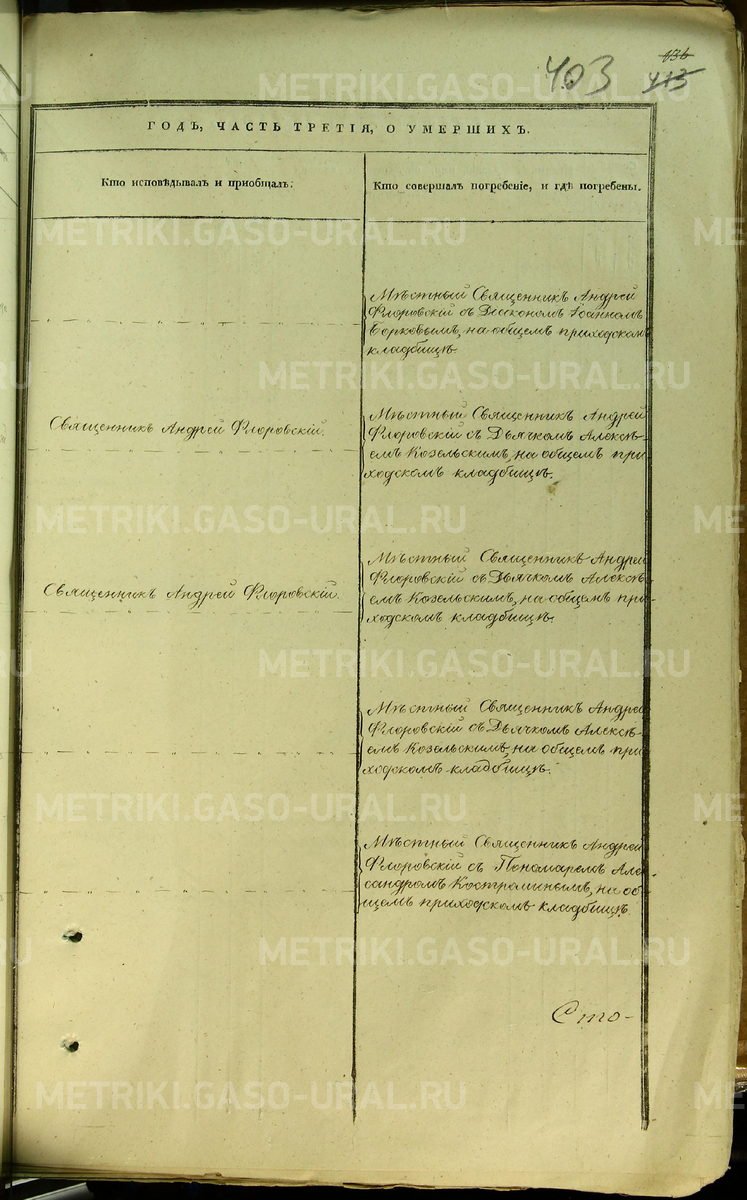 403
136
413
ГОДЪ, ЧАСТЬ ТРЕТІЯ, О УМЕРШИХЪ.
Кто исповѣдывалъ и пріобщалъ.
Кто совершалъ погребеніе, и гдѣ погребены.
Мѣстный Священникъ Андрей
Флоровскій съ Діакономъ Іоанномъ
на общемъ приходскомъ
кладбищѣ.
Священникъ Андрей Флоровскій.
Мѣстный Священникъ Андрей
Флоровскій съ Дьячкомъ Алексѣ-
емъ Козельскимъ, на общемъ при
ходскомъ кладбищѣ.
Священникъ Андрей Флоровскій.
Мѣстный Священникъ Андрей
Флоровскій съ Дьячкомъ Алексѣ-
емъ Козельскимъ, на общемъ при-
ходскомъ кладбищѣ.
Мѣстный Священникъ Андрей
Флоровскій съ Дьячкомъ Алексѣ-
емъ Козельскимъ, на общемъ при
ходскомъ кладбищѣ.
Мѣстный Священникъ Андрей
Флоровскій съ Пономаремъ Алек
сандромъ Костроминымъ, на об
щемъ приходскомъ кладбищѣ
Сто-
METRIKI.GASO-URAL.RU